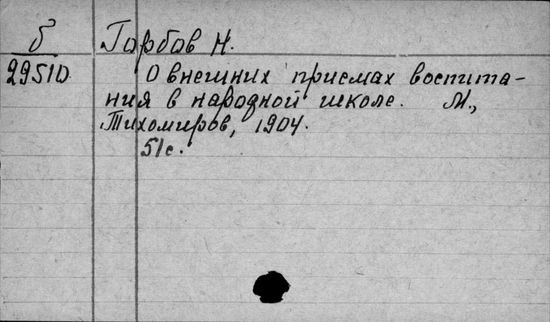 б
29510
Горбов Н.
О внешних приемах воспита-
ния в народной школе. М.,
Тихомиров, 1904.
51с.